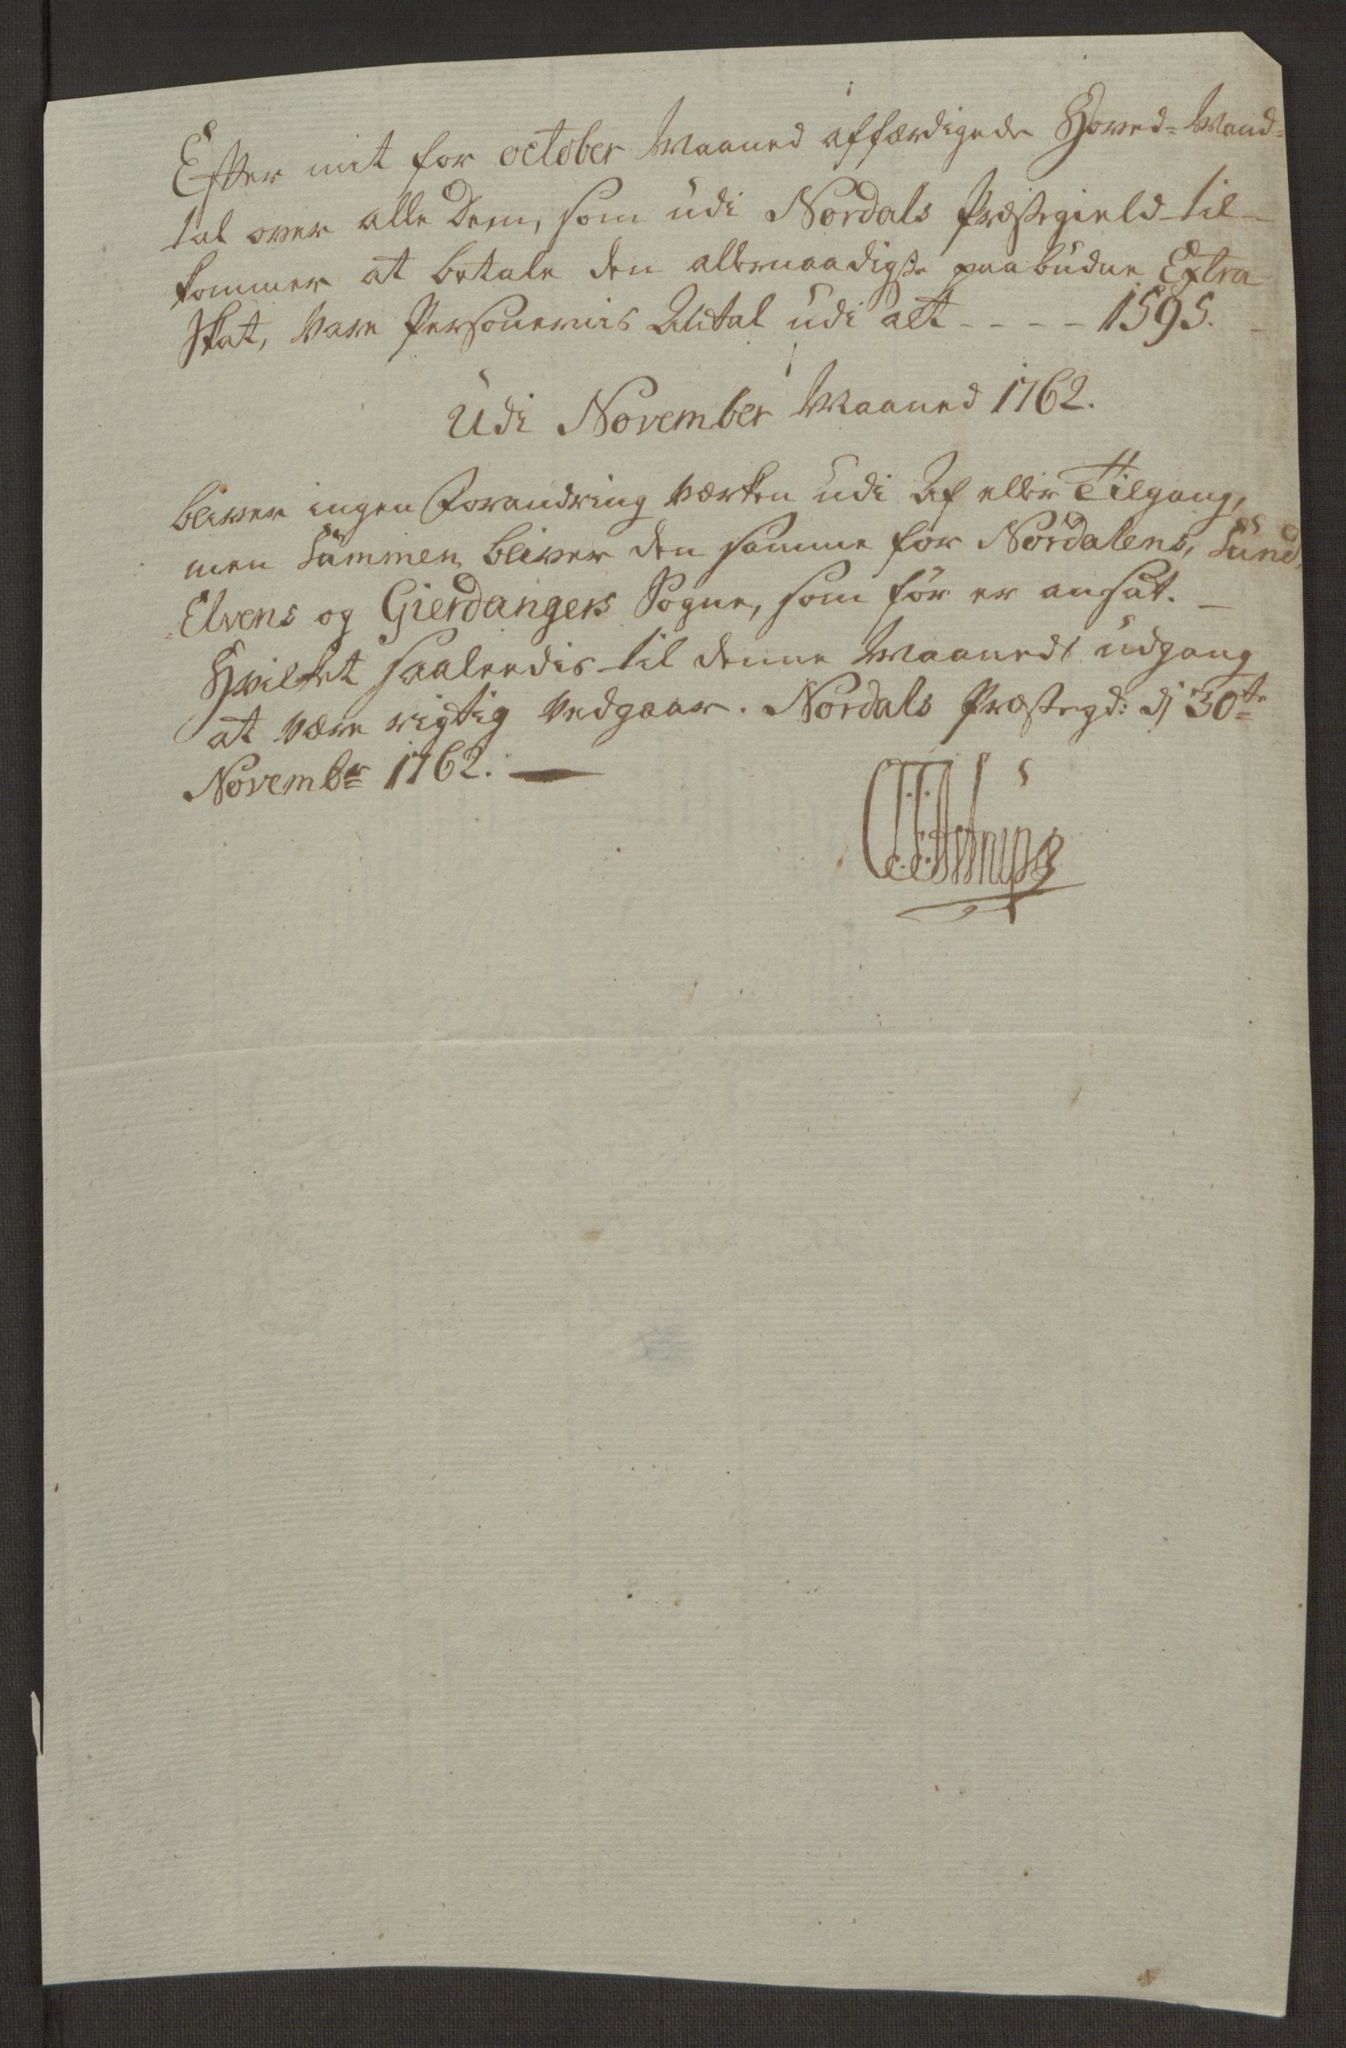 Efter mit for october Maaned affærdigede Hoved-Mand-
tal over alle Dem, som udi Nordals Præstegield til-
kommer at betale den allernaadigste paabudne Extra
Skat, vare Personernis Antal udi alt - - - - 1595.
Udi November Maaned 1762.
bliver ingen Forandring værken udi Af eller Tilgang,
men Summen bliver den samme for Nordalens, Sund,
Elvens og Gierdangers Sogne, som før er ansat.
Hvilket saaleedis til denne Maaneds udgang
at være rigtig vedgaar. Nordals Præstegd: dj 30te
Novembr 1762.